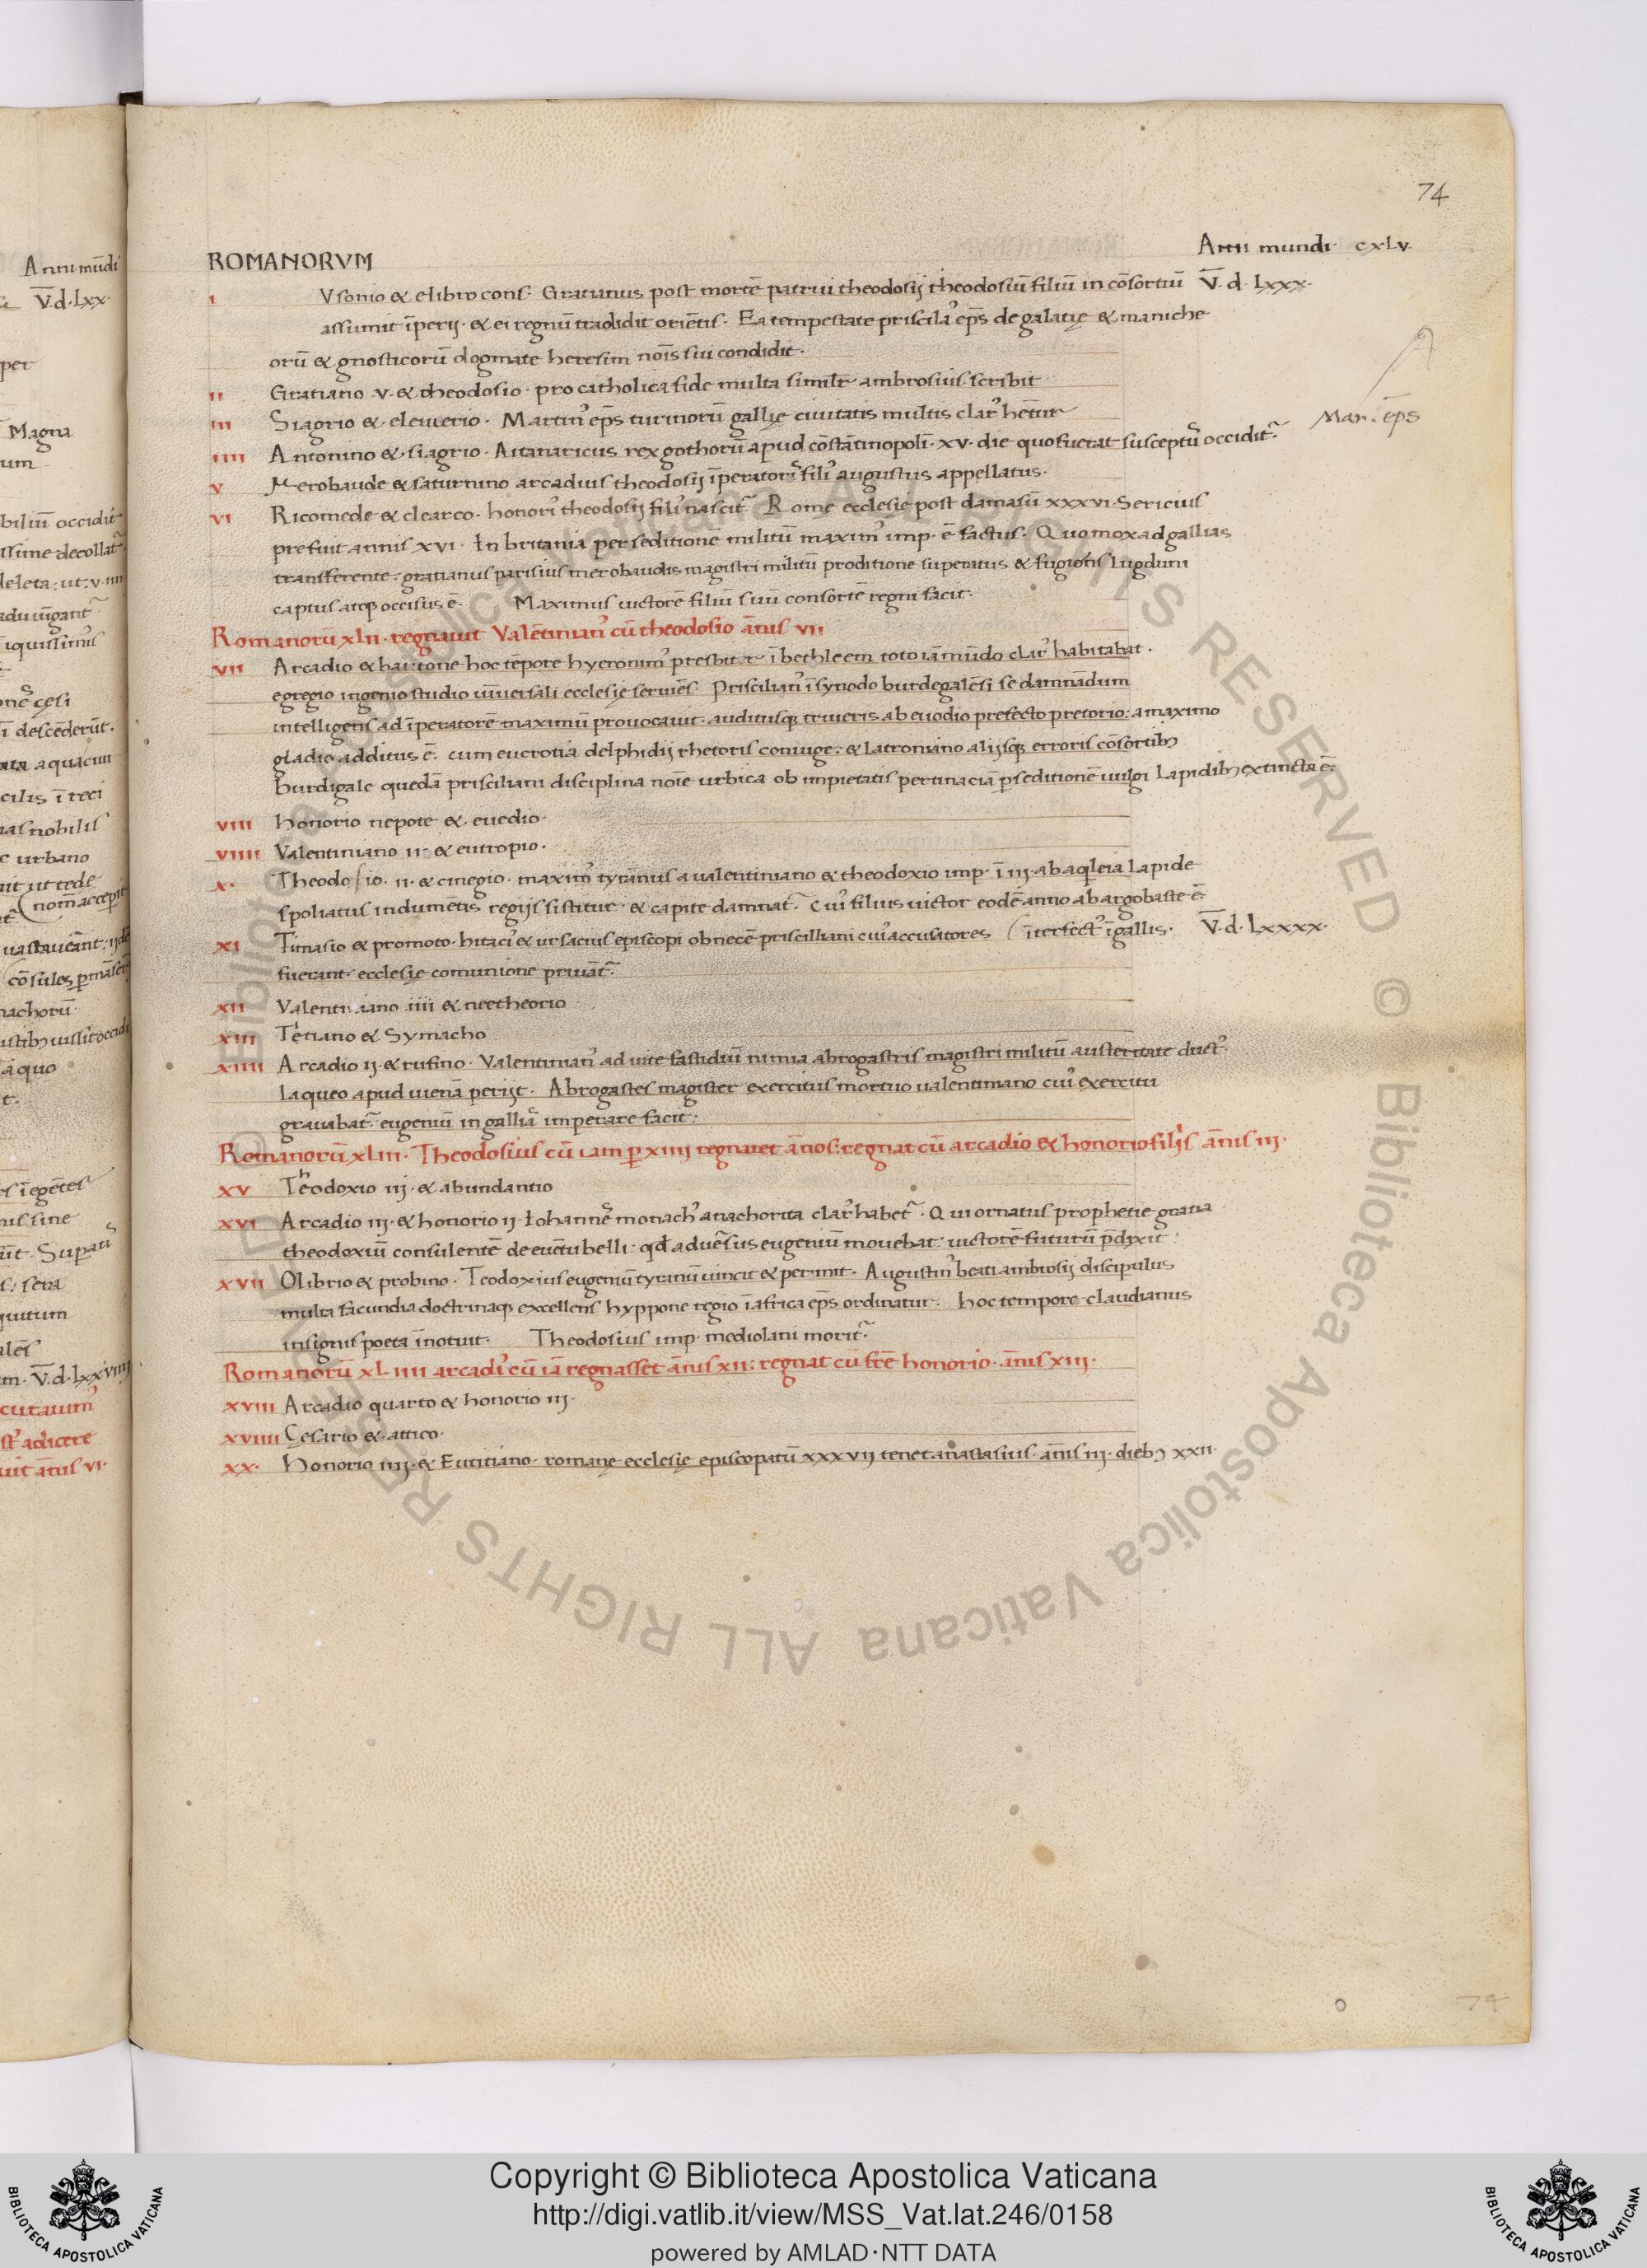 74
ROMANORVM
Anni mundi cxlv.
I Vsonio & elibro cons. Gratianus post mortē patrui theodosij theodosiū filiū in cōsortiū V̄. d. Lxxx.
assumit īperij. & ei regnū tradidit oriētis. Ea tempestate priscila' ep̄s de galatię & maniche
orū & gnosticorū dogmate heresim noīs sui condidit.
II Gratiano .v. & theodosio. pro catholica fide multa similr̄ ambrosius scribit
III Siagrio & eleuterio. Martin' ep̄s turinorū gallię ciuitatis multis clar' hētur
Mar. ep̄s
IIII Antonino & siagrio. Aitanaricus rex gothorū apud cōstātinopolī. xv. die quo fuerat susceptus occidit̄.
V Merobaude & saturnino arcadius theodosij īperatoris fili' augustus appellatus.
VI Ricomede & clearco. honori' theodosij fili' nascit̄ Rome ecclesie post damasū xxxvi. Sericius
prefuit annis xvi. In britania per seditionē militū maxim' imp. ē factus. Quo mox ad gallias
transferente. gratianus parisius merobaudis magistri militū proditione superatus & fugiens Lugduni
captus atq; occisus ē. Maximus uictorē filiū suū consortē regni facit.
Romanorū xlii. regnauit Valētinian' cū theodosio ānis vii
VII Arcadio & bautone hoc tēpore hyeronim' presbiter ī bethleem toto iā mūdo clar' habitabat.
egregio ingenio studio uniuersali ecclesię seruiēs Priscilian' ī synodo burdegalēsi se damnādum
intelligens ad īperatorē maximū prouocauit. auditusq; triueris ab euodio prefecto pretorio: a maximo
gladio additus ē. cum eucrotia delphidij rhetoris coniuge: & Latroniano alijsq; erroris cōsortib;
burdigale quedā prisciliani disciplina noīe urbica ob impietatis pertinaciā p seditionē uulgi Lapidib; extincta ē.
VIII honorio nepote & euedio.
VIIII Valentiniano ii. & eutropio.
X. Theodosio. ii. & cinegio. maxim' tyrānus a ualentiniano & theodoxio imp. ī iii. ab aq̄leia Lapide
spoliatus indumētis regijs sistitur. & capite damnat̄. cui' filius uictor eodē anno ab argobaste ē
XI Timasio & promoto. hitaci' & ursacius episcopi ob necē priscilliani cui' accusatores ( īterfect' ī gallis. V̄. d. Lxxxx.
fuerant. ecclesię comunione priuāt̄.
XII Valentiniano iiii & neetheorio
XIII Tętiano & Symacho
XIIII Arcadio ij. & rufino. Valentinian' ad uite fastidiū nimia abrogastris magistri militū austeritate duct'
Laqueo apud uienā perijt. Abrogastes magister exercitus mortuo ualentiniano cui' exercitu
grauabat̄. eugeniū in galliā imperare facit:
Romanorū xliii. Theodosius cū iam p xiiii regnaret ānos: regnat cū arcadio & honorio filijs ānis iij.
XV Theodoxio iij. & abundantio
XVI Arcadio iij. & honorio ij. Iohannes monach' anachorita clar' habet̄. Qui ornatus prophetię gratia
theodoxiū consulentē de euētu belli. qd̄ aduersus eugeniū mouebat. uictorē futurū p̄dixit.
XVII Olibrio & probino. Teodoxius eugeniū tyranū uincit & perimit. Augustin' beati ambrosij discipulus
multa facundia doctrinaq; excellens hyppone regio ī africa ep̄s ordinatur. hoc tempore claudianus
insignis poeta īnotuit. Theodosius imp. mediolani morit̄.
Romanorū XLIIII arcadi' cū iā regnasset ānis xii: regnat cū fr̄e honorio. ānis xiii.
XVIII Arcadio quarto & honorio iij.
XVIIII Cęsario & attico.
XX. Honorio iiij. & Eutitiano. romanę ecclesię episcopatū xxxvij tenet anastasius. ānis iij. dieb; xxii.
74
Copyright © Biblioteca Apostolica Vaticana
http://digi.vatlib.it/view/MSS_Vat.lat.246/0158
powered by AMLAD·NTT DATA
BIBLIOTECA APOSTOLICA VATICANA
BIBLIOTECA APOSTOLICA VATICANA